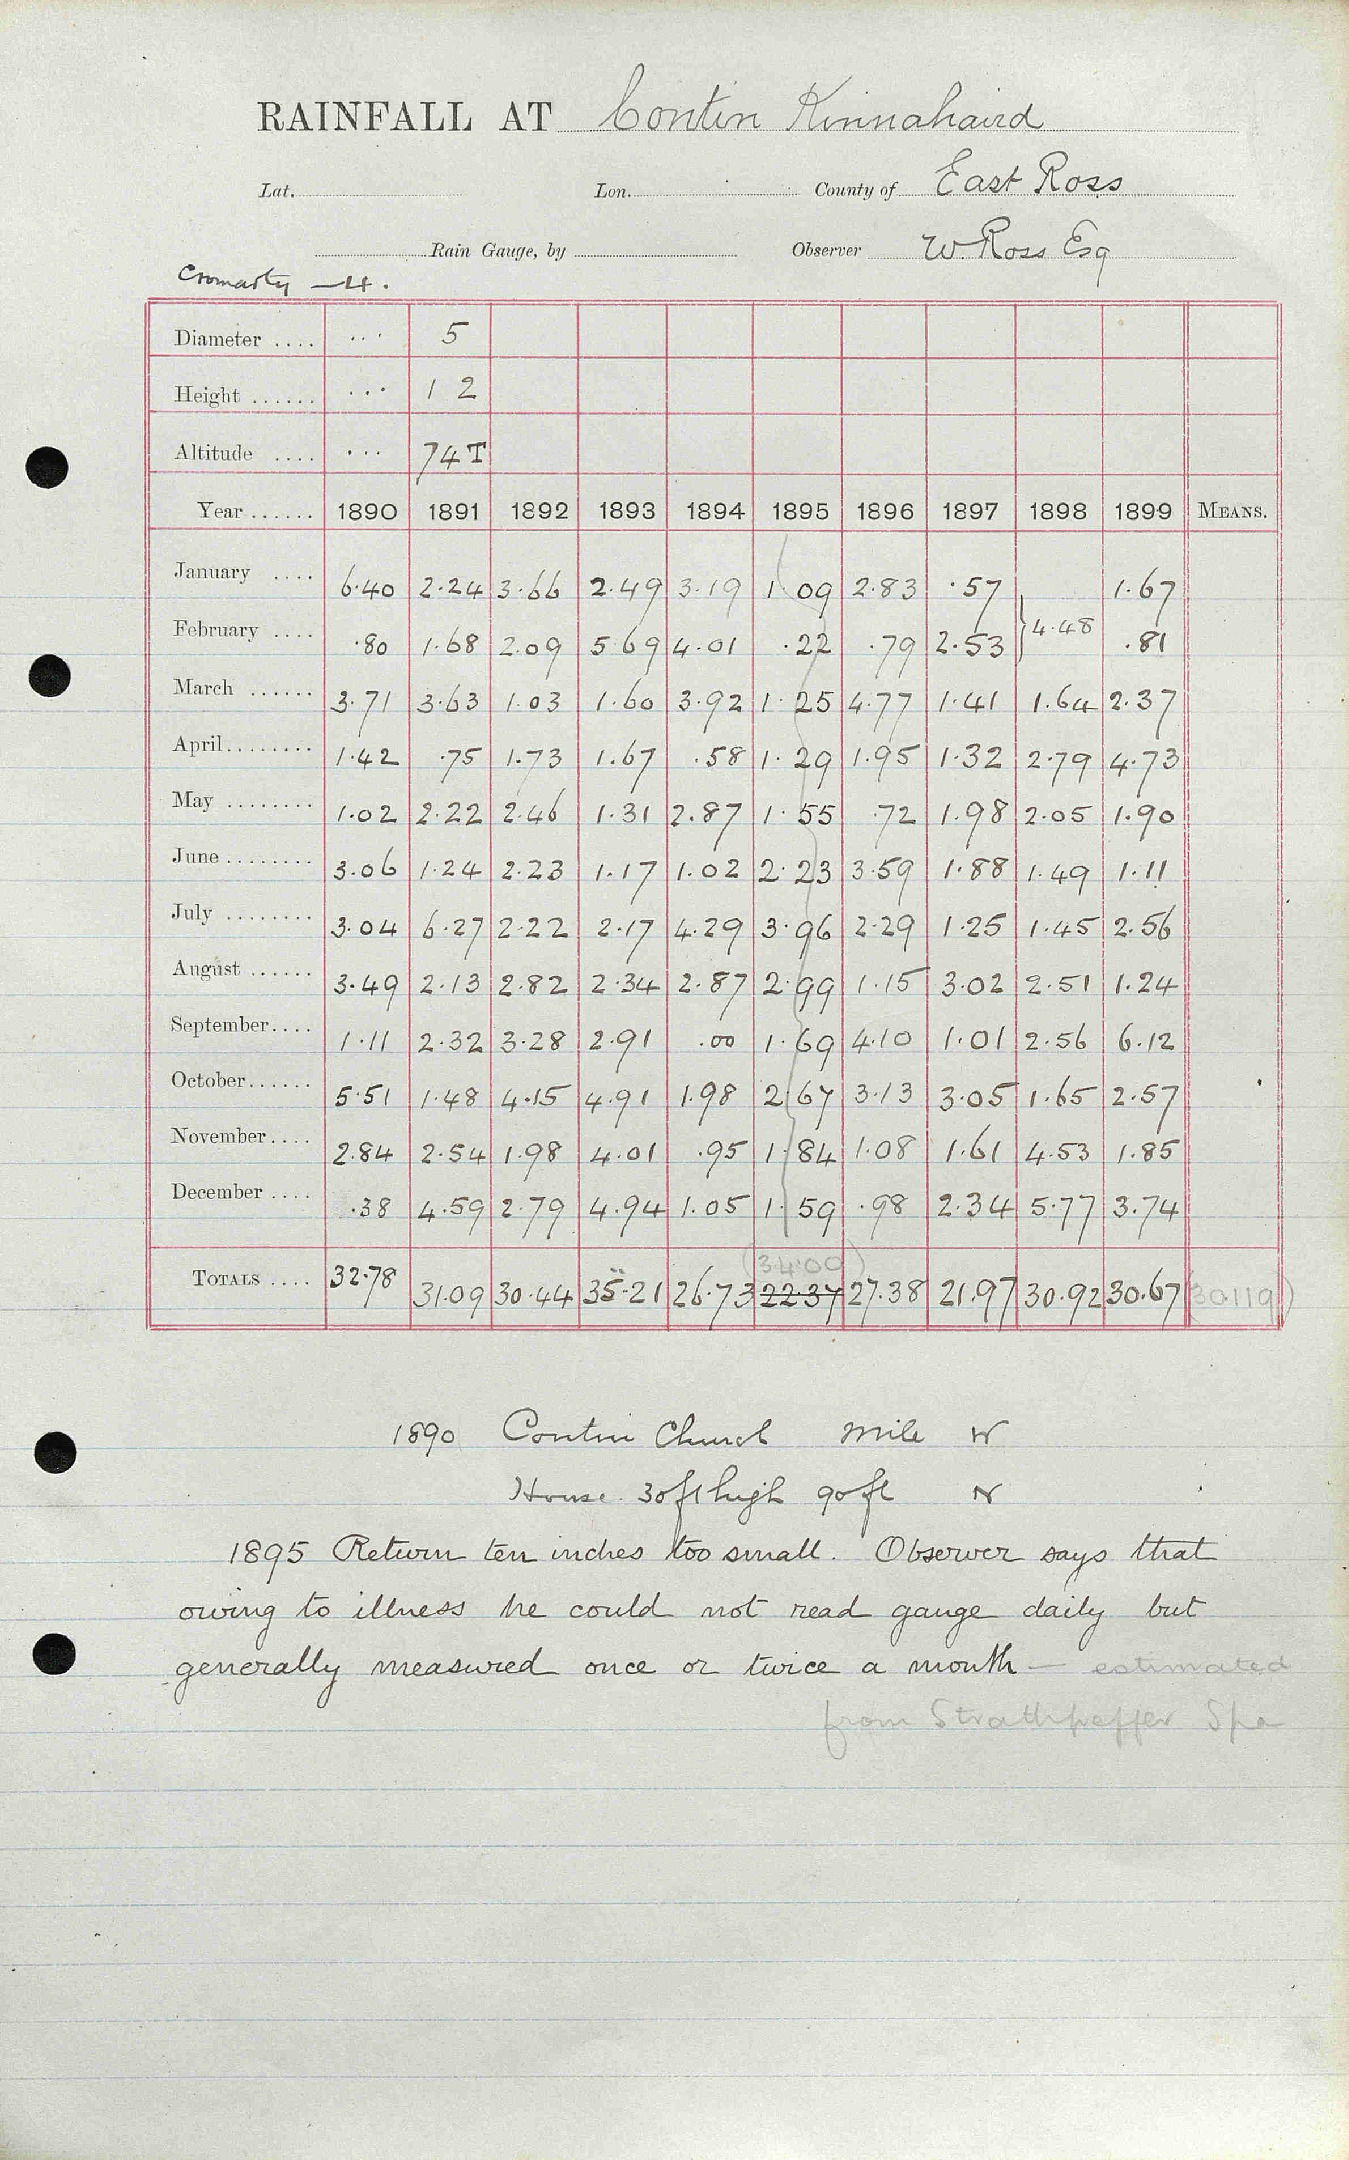 RAINFALL AT Contin Kinnahaird
Lat. Lon. County of East Ross
Rain Gauge, by Observer W. Ross Esq
Cromarty — 4.
Diameter .... ... 5
Height ...... ... 1 2
Altitude .... ... 74T
Year ...... 1890 1891 1892 1893 1894 1895 1896 1897 1898 1899 MEANS.
January .... 6.40 2.24 3.66 2.49 3.19 1.09 2.83 .57 1.67
February .... .80 1.68 2.09 5.69 4.01 .22 .79 2.53 } 4.48 .81
March ...... 3.71 3.63 1.03 1.60 3.92 1.25 4.77 1.41 1.64 2.37
April........ 1.42 .75 1.73 1.67 .58 1.29 1.95 1.32 2.79 4.73
May ........ 1.02 2.22 2.46 1.31 2.87 1.55 .72 1.98 2.05 1.90
June ........ 3.06 1.24 2.23 1.17 1.02 2.23 3.59 1.88 1.49 1.11
July ........ 3.04 6.27 2.22 2.17 4.29 3.96 2.29 1.25 1.45 2.56
August ...... 3.49 2.13 2.82 2.34 2.87 2.99 1.15 3.02 2.51 1.24
September.... 1.11 2.32 3.28 2.91 .00 1.69 4.10 1.01 2.56 6.12
October...... 5.51 1.48 4.15 4.91 1.98 2.67 3.13 3.05 1.65 2.57
November.... 2.84 2.54 1.98 4.01 .95 1.84 1.08 1.61 4.53 1.85
December .... .38 4.59 2.79 4.94 1.05 1.59 .98 2.34 5.77 3.74
(34.00)
TOTALS .... 32.78 31.09 30.44 35.21 26.73 22.37 27.38 21.97 30.92 30.67 (30.119)
1890 Contin Church mile W
House 30ft high 90ft N
1895 Return ten inches too small. Observer says that
owing to illness he could not read gauge daily but
generally measured once or twice a month — estimated
from Strathpeffer Spa